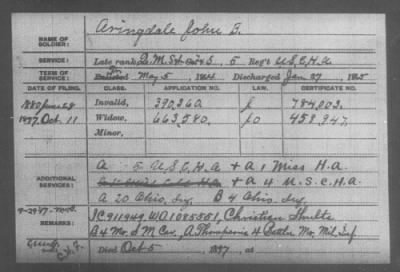 NAME OF SOLDIER: Aringdale John B.
SERVICE: Late rank Q. M. St. 5 Reg't U S C H A
TERM OF SERVICE: Enlisted May 5, 1864 Discharged Jan 27, 1865
DATE OF FILING. CLASS. APPLICATION NO. LAW. CERTIFICATE NO.
1880 June 28 Invalid, 390,260 784,802.
1897, Oct. 11 Widow, 663,580, 458,947.
Minor,
ADDITIONAL SERVICES: A 5 U S C H A + A 1 Miss H. A.
+ A 4 U.S.C.H.A.
A 20 Ohio, Inf. B 4 Ohio, Inf.
1C911949, WO1085551, Christian
B 4 Mo. S M Cav., A 4 Mo. Mil Inf
Died Oct 5, 1897, at